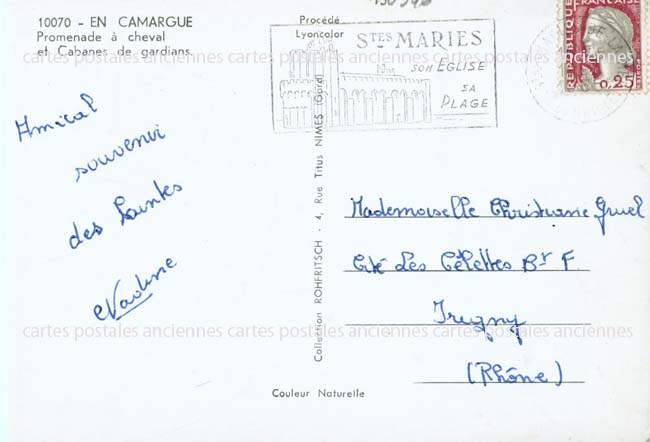 10070 - EN CAMARGUE
Promenade à cheval
et Cabanes de gardians.
Procédé
Lyoncolor
STES MARIES
SON EGLISE
SA
PLAGE
REPUBLIQUE
FRANÇAISE
0,25
cartes postales anciennes cartes postales anciennes cartes postales anciennes
Amical
souvenir
des Saintes
Nadine
Collection ROHFRITSCH - 4, Rue Titus NIMES (Gard)
Mademoiselle Christiane Gruel
Cité Les Célettes Bt F.
Irigny
(Rhône)
cartes postales anciennes cartes postales anciennes cartes postales anciennes
Couleur Naturelle